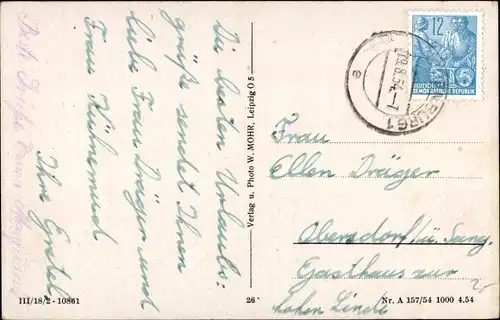 Die besten Urlaubs-
grüße sendet Ihnen
liebe Frau Dräger und
Frau Kühnemund
Ihre Gretel
Beste Grüße
Verlag u. Photo W. MOHR, Leipzig O 5
12
DEUTSCHE
DEMOKRATISCHE REPUBLIK
19.8.54.-7
BURG 1
e
Frau
Ellen Dräger
Obersdorf/ü. Sang.
Gasthaus zur
hohen Linde
III/18/2 - 10861
26
Nr. A 157/54 1000 4.54